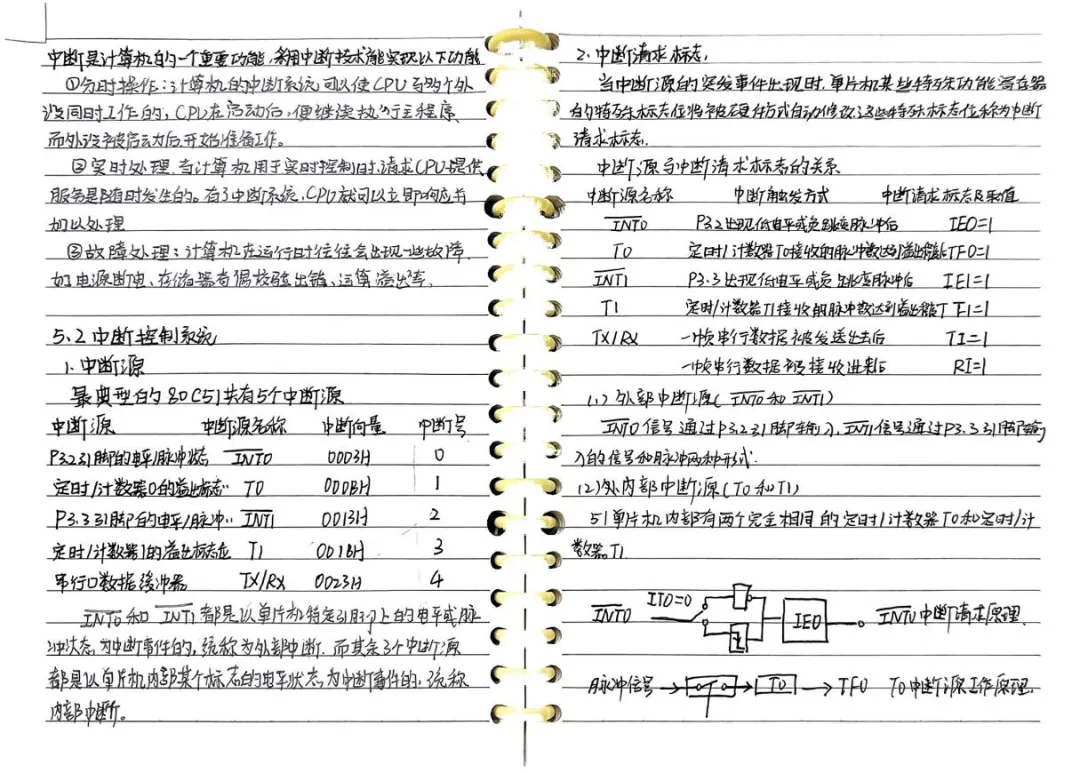 中断是计算机的一个重要功能,采用中断技术能实现以下功能
①分时操作:计算机的中断系统可以使CPU与多个外
设同时工作的,CPU在启动后,便继续执行主程序,
而外设被启动后开始准备工作。
②实时处理,当计算机用于实时控制时,请求CPU提供
服务是随时发生的。有了中断系统,CPU就可以立即响应并
加以处理
③故障处理:计算机在运行时往往会出现一些故障,
如电源断电、存储器奇偶校验出错、运算溢出等,
5.2中断控制系统
1.中断源
最典型的80C51共有5个中断源
中断源 中断源名称 中断向量 中断号
P3.2引脚的电平/脉冲状态 INT0 0003H 0
定时/计数器0的溢出标志 T0 000BH 1
P3.3引脚的电平/脉冲.. INT1 0013H 2
定时/计数器1的溢出标志位 T1 001BH 3
串行口数据缓冲器 TX/RX 0023H 4
INT0和INT1都是以单片机特定引脚上的电平或脉
冲状态为中断事件的,统称为外部中断.而其余3个中断源
都是以单片机内部某个标志的电平状态为中断事件的,统称
内部中断。
2.中断请求标志,
当中断源的突发事件出现时,单片机某些特殊功能寄存器
的特殊标志位将被硬件方式自动修改,这些特殊标志位称为中断
请求标志.
中断源与中断请求标志的关系
中断源名称 中断触发方式 中断请求标志及取值
INT0 P3.2出现低电平或负跳变脉冲后 IE0=1
T0 定时/计数器T0接收的脉冲数达到溢出程度后TF0=1
INT1 P3.3出现低电平或负跳变脉冲后 IE1=1
T1 定时/计数器T1接收的脉冲数达到溢出程度TF1=1
TX/RX 一帧串行数据被发送出去后 TI=1
一帧串行数据被接收进来后 RI=1
(1)外部中断源(INT0和INT1)
INT0信号通过P3.2引脚输入,INT1信号通过P3.3引脚输
入的信号和脉冲两种形式.
(2)内部中断源(T0和T1)
51单片机内部有两个完全相同的定时/计数器T0和定时/计
数器T1
INT0 IT0=0 IE0 INT0中断请求原理.
脉冲信号 T0 TF0 T0中断源工作原理.